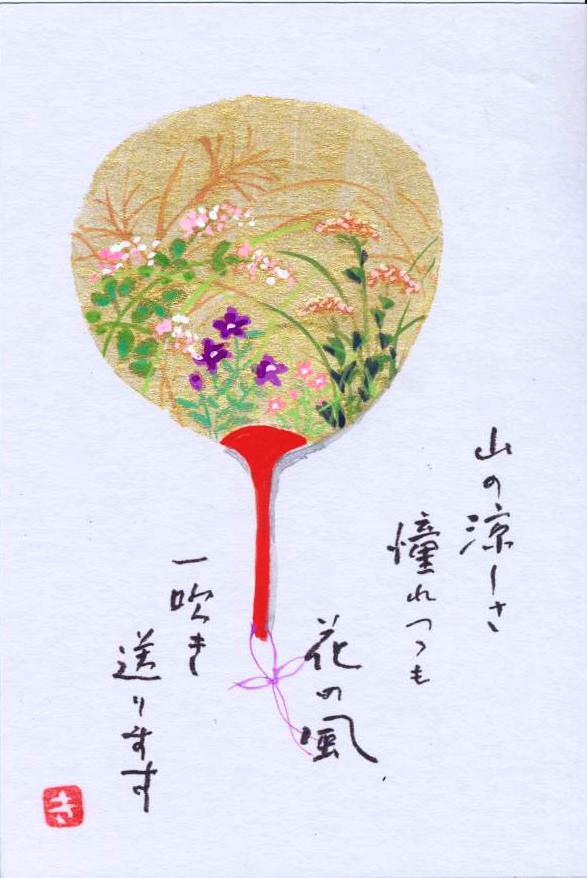 山の涼しさ
憧れつつも
花の風
一吹き
送ります
き